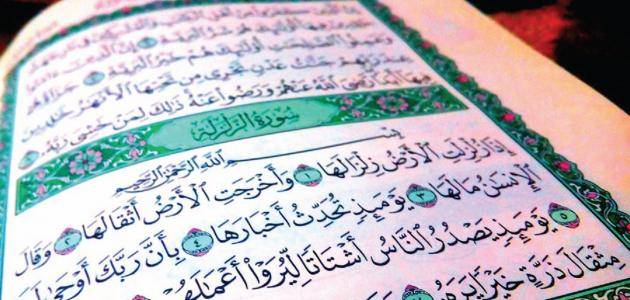 وَعَمِلُوا۟ ٱلصَّٰلِحَٰتِ أُو۟لَٰٓئِكَ هُمْ خَيْرُ ٱلْبَرِيَّةِ ٧ جَزَآؤُهُمْ
عِندَ رَبِّهِمْ جَنَّٰتُ عَدْنٍ تَجْرِى مِن تَحْتِهَا ٱلْأَنْهَٰرُ خَٰلِدِينَ
فِيهَآ أَبَدًا رَّضِىَ ٱللَّهُ عَنْهُمْ وَرَضُوا۟ عَنْهُ ذَٰلِكَ لِمَنْ خَشِىَ رَبَّهُۥ ٨
سُورَةُ الزَّلْزَلَةِ
بِسْمِ ٱللَّهِ ٱلرَّحْمَٰنِ ٱلرَّحِيمِ
إِذَا زُلْزِلَتِ ٱلْأَرْضُ زِلْزَالَهَا ١ وَأَخْرَجَتِ ٱلْأَرْضُ أَثْقَالَهَا ٢ وَقَالَ
ٱلْإِنسَٰنُ مَا لَهَا ٣ يَوْمَئِذٍ تُحَدِّثُ أَخْبَارَهَا ٤ بِأَنَّ رَبَّكَ أَوْحَىٰ لَهَا
٥ يَوْمَئِذٍ يَصْدُرُ ٱلنَّاسُ أَشْتَاتًا لِّيُرَوْا۟ أَعْمَٰلَهُمْ
مِثْقَالَ ذَرَّةٍ خَيْرًا يَرَهُۥ